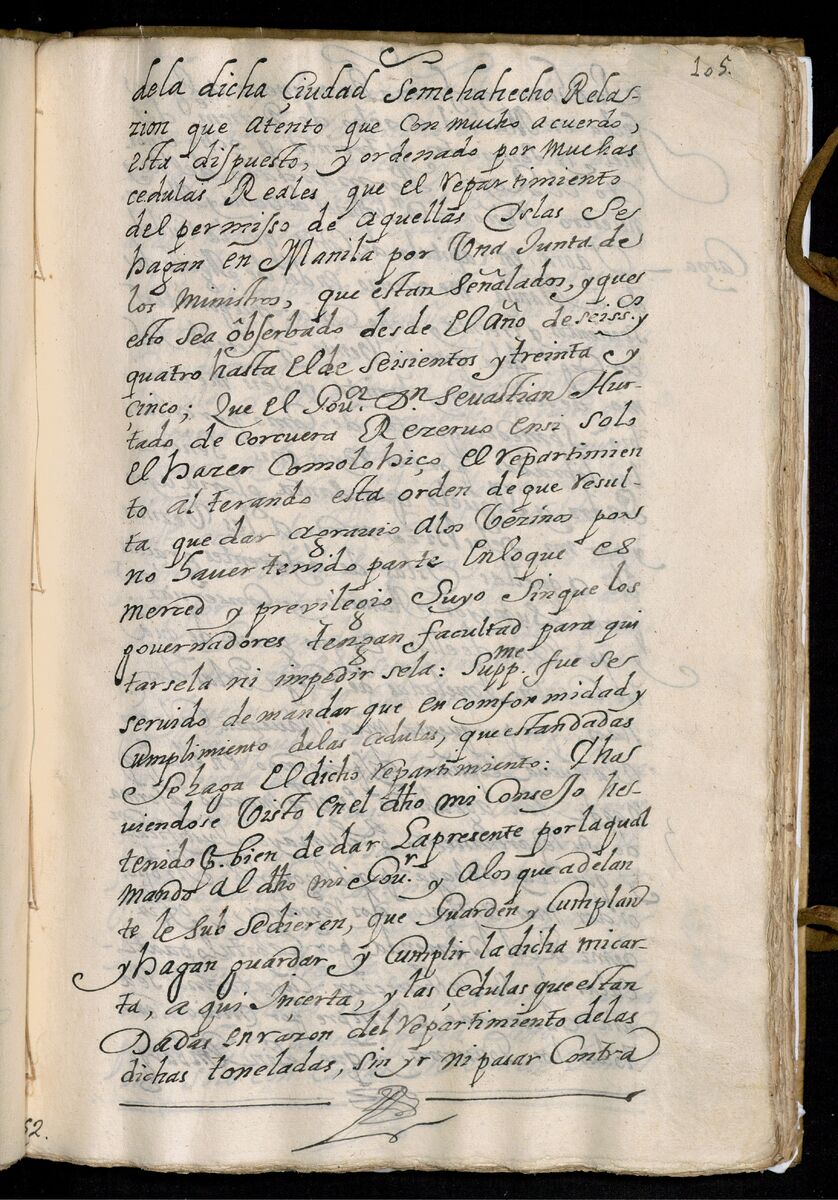 105.
dela dicha Çiudad semehahecho Rela-
zion que atento que con mucho acuerdo,
esta dispuesto, y ordenado por muchas
cedulas Reales que el repartimiento
del permisso de aquellas Yslas se
hagan en Manila por Una Junta de
los Ministros, que estan señalados, y ques
esto sea observado desde El Año de seissos. y
quatro hasta El de seisientos y treinta y
cinco; Que el Gour. Dn sevastian Hur-
tado de corcuera Rezervo ensi solo
El hazer Comolo hiço el repartimien
to alterando esta órden de que resul-
ta quedar agrauio alos Vezinos por
no hauer tenido parte Enloque es
merced y previlegio Suyo sinque los
governadores tengan facultad para qui
tarsela ni impedir sela: Suppme. fue se
seruido de mandar que en comformidad y
Cumplimiento delas cedulas, que estan dadas
se haga El dicho repartimiento: Y has
viendose Visto en el dho mi Consejo he
tenido p. bien de dar La presente por la qual
mando Al dho mi Gour. y Alos que adelan
te le sub sedieren, que Guarden y Cumplan
y hagan guardar y Cumplir la dicha mi car-
ta, a qui Incerta, y las Çedulas que estan
Dadas en razon del repartimiento de las
dichas toneladas, sin yr ni pasar Contra
52.